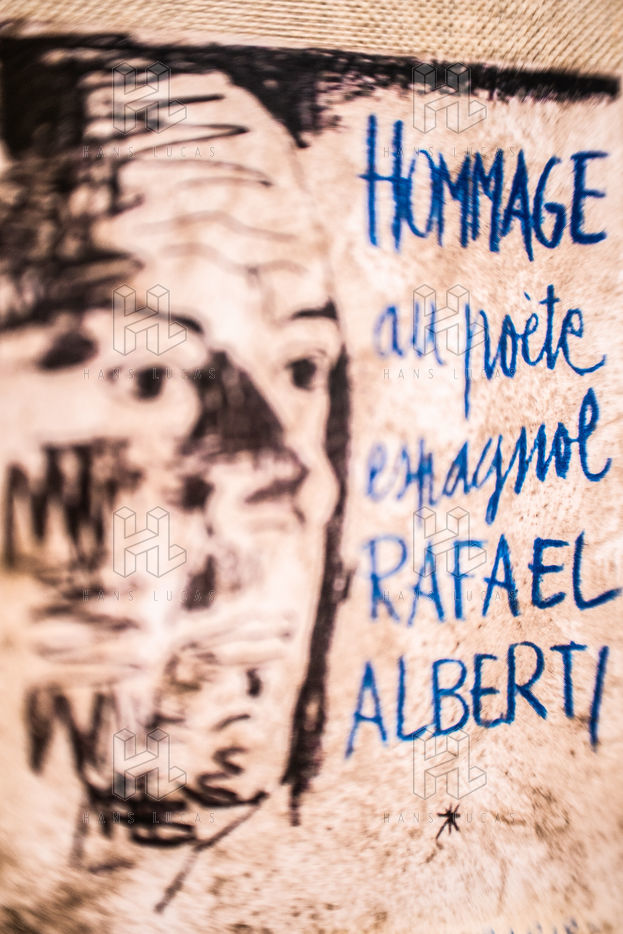 HOMMAGE
au poète
espagnol
RAFAEL
ALBERTI
HANS LUCAS
HANS LUCAS
HANS LUCAS
HANS LUCAS
HANS LUCAS
HANS LUCAS
HANS LUCAS
HANS LUCAS